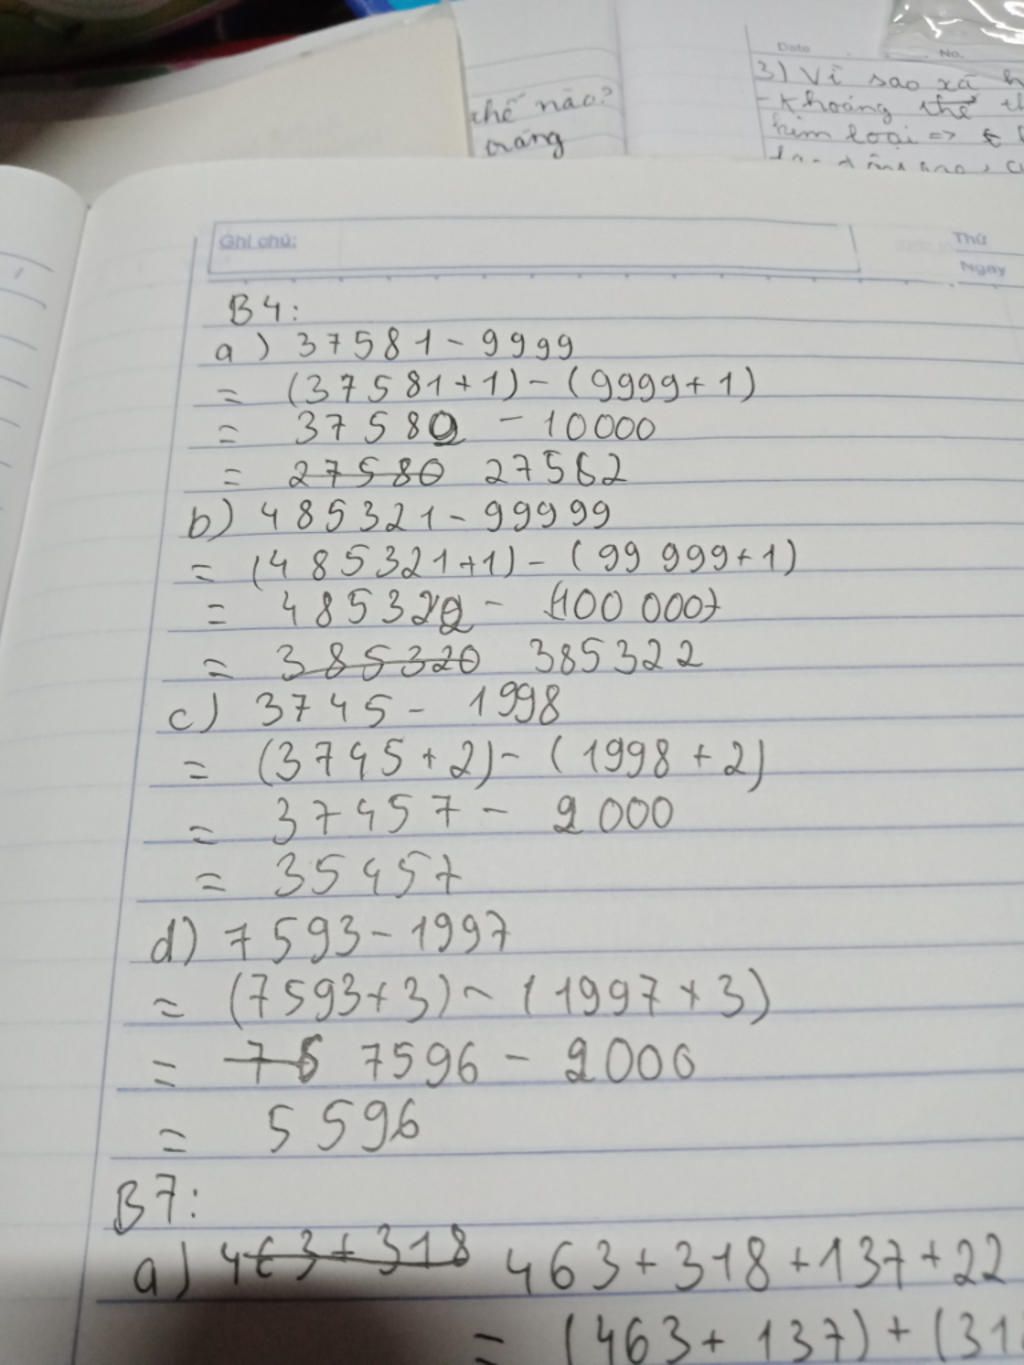 Date No.
3) Vì sao xã
thế nào? - Khoáng thế
trang kim loại =>
Ghi chú: Thứ
Ngày
B4:
a) 37581 - 9999
= (37581+1) - (9999+1)
= 37582 - 10000
= 27580 27562
b) 485321 - 99999
= (485321+1) - (99 999+1)
= 485322 - (100 000)
= 385320 385322
c) 3745 - 1998
= (3745+2) - (1998+2)
= 37457 - 2000
= 35457
d) 7593 - 1997
= (7593+3) - (1997+3)
= 76 7596 - 2000
= 5596
B7:
a) 463+318 463+318+137+22
= (463+137)+(31